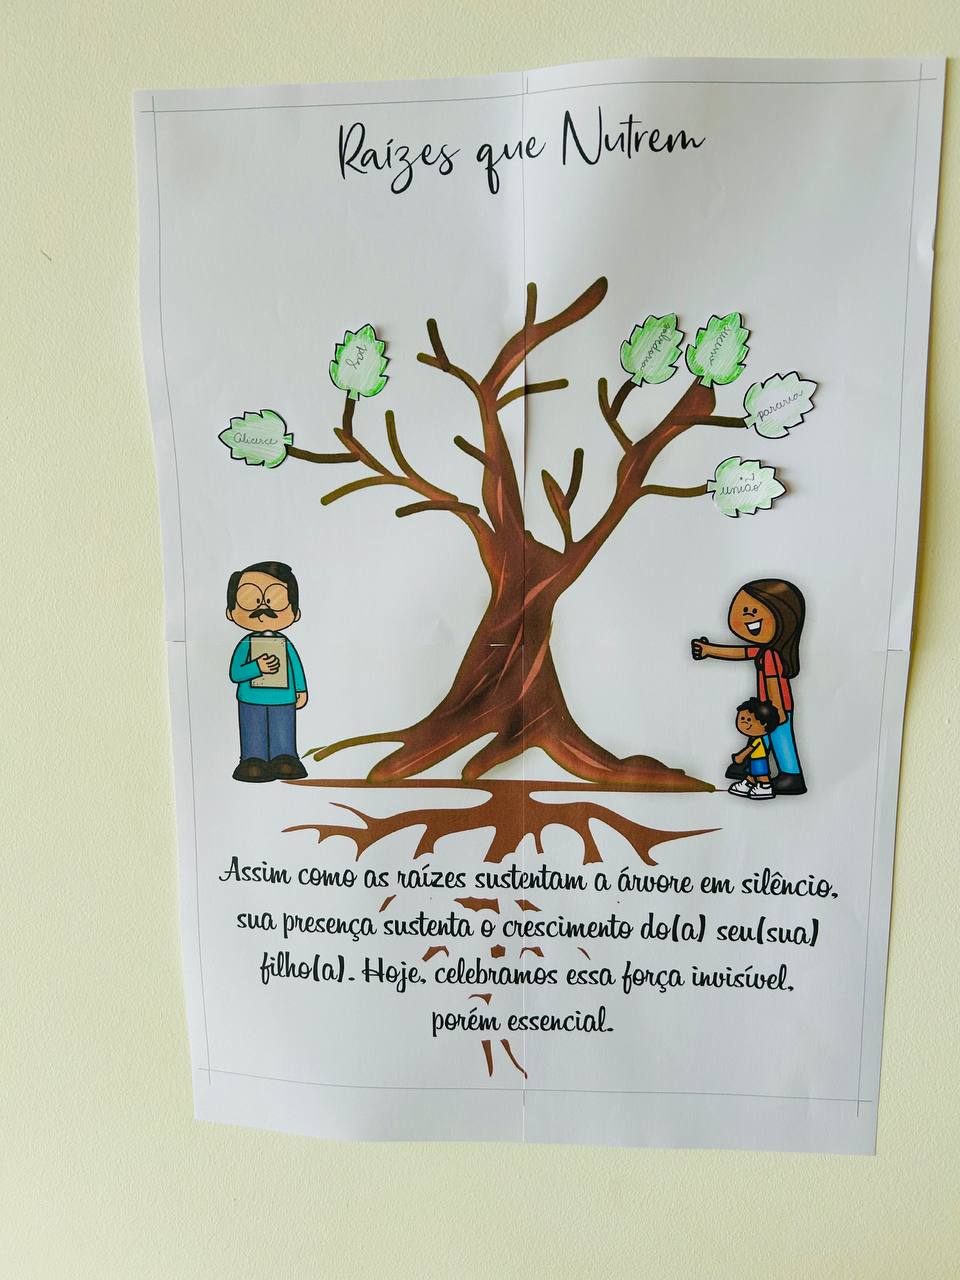 Raízes que Nutrem
paz
sabedoria
parceria
Alicerce
união
Assim como as raízes sustentam a árvore em silêncio,
sua presença sustenta o crescimento do(a) seu(sua)
filho(a). Hoje, celebramos essa força invisível,
porém essencial.